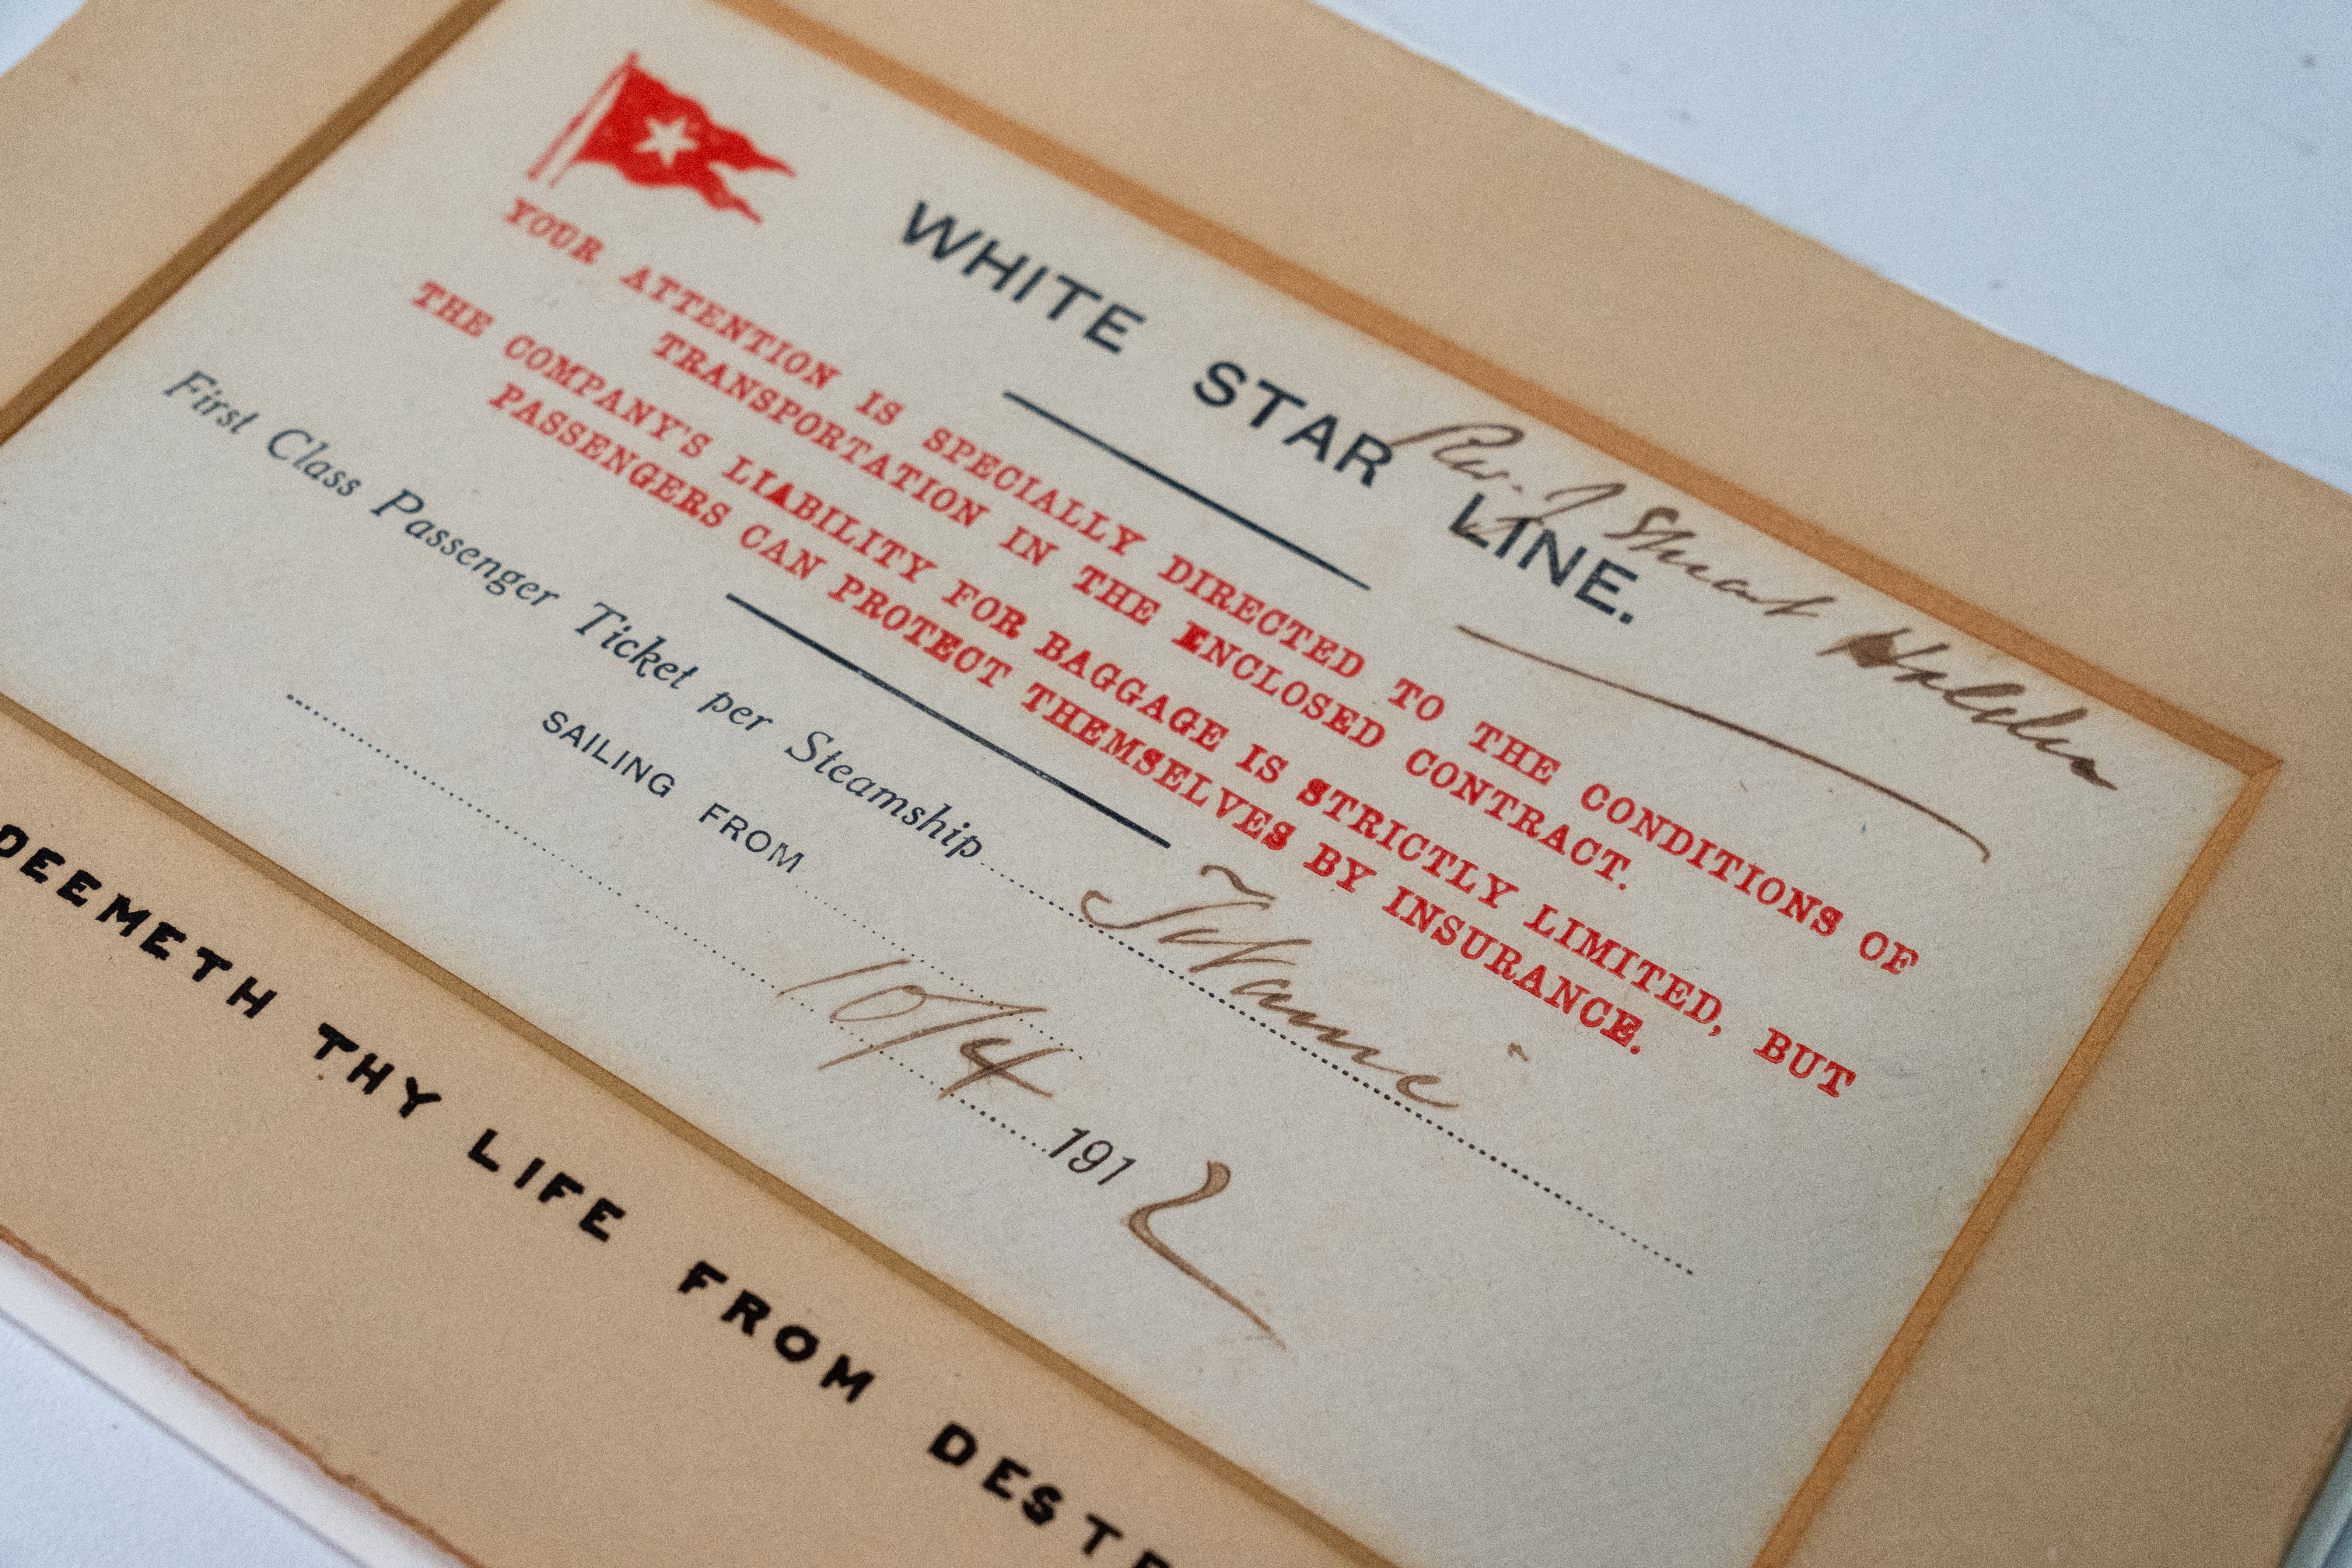 WHITE STAR LINE.
Rev. J Stuart Holden
YOUR ATTENTION IS SPECIALLY DIRECTED TO THE CONDITIONS OF
TRANSPORTATION IN THE ENCLOSED CONTRACT.
THE COMPANY'S LIABILITY FOR BAGGAGE IS STRICTLY LIMITED, BUT
PASSENGERS CAN PROTECT THEMSELVES BY INSURANCE.
First Class Passenger Ticket per Steamship Titanic
SAILING FROM
10/4 1912
DEEMETH THY LIFE FROM DESTR